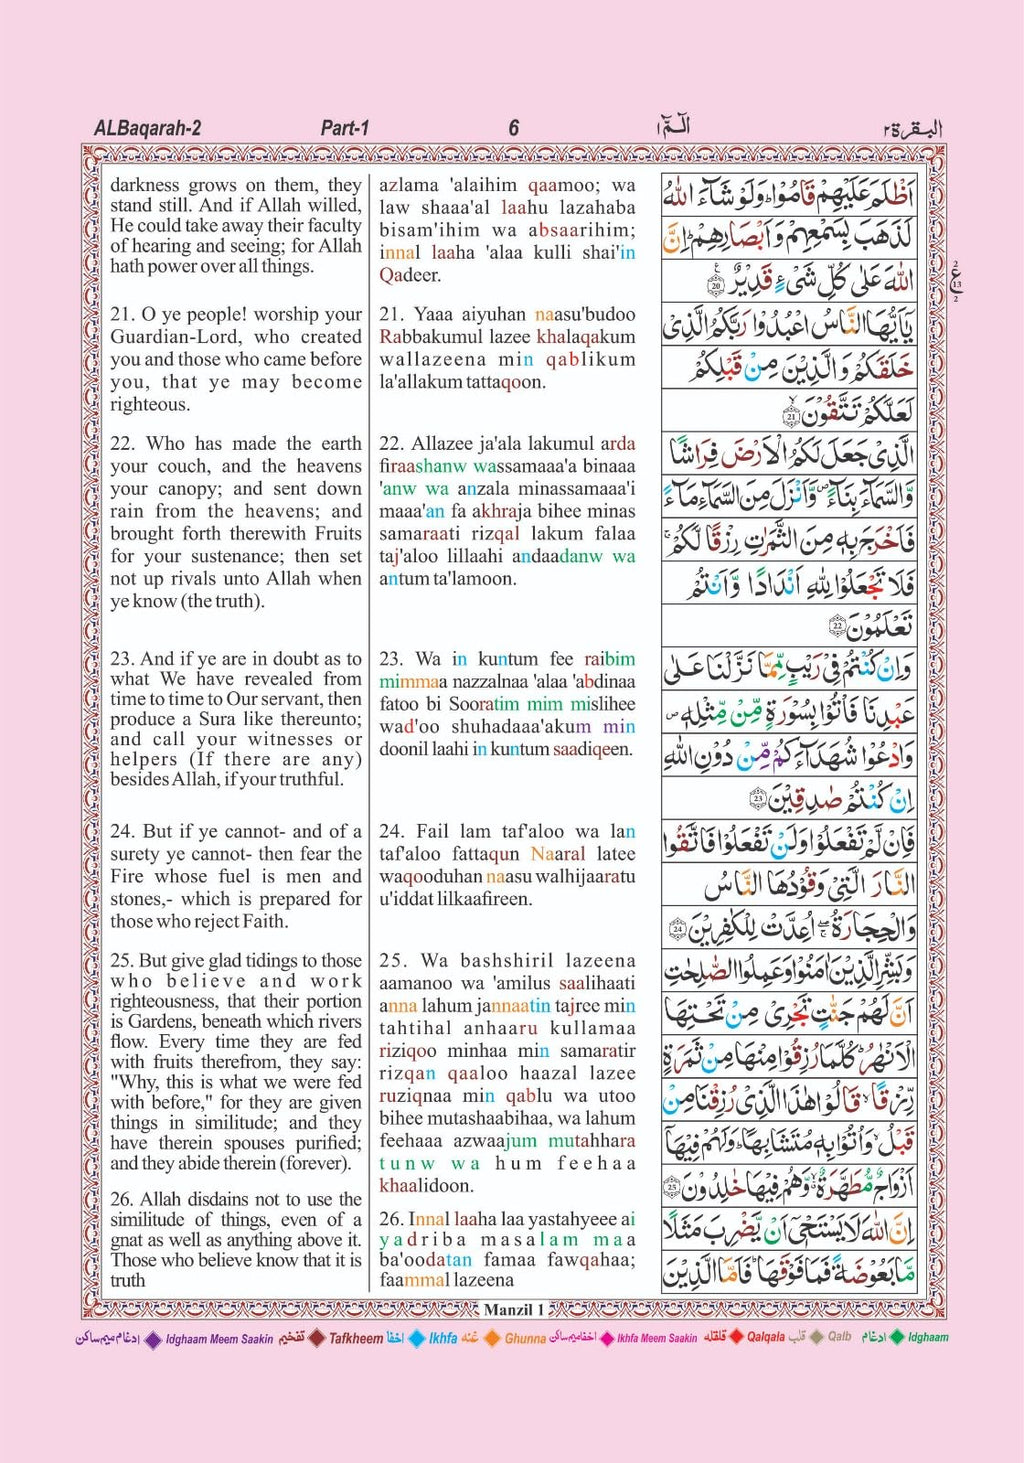 ALBaqarah-2 Part-1 6 الٓمّٓ ١ البقرة ٢
darkness grows on them, they
stand still. And if Allah willed,
He could take away their faculty
of hearing and seeing; for Allah
hath power over all things.
21. O ye people! worship your
Guardian-Lord, who created
you and those who came before
you, that ye may become
righteous.
22. Who has made the earth
your couch, and the heavens
your canopy; and sent down
rain from the heavens; and
brought forth therewith Fruits
for your sustenance; then set
not up rivals unto Allah when
ye know (the truth).
23. And if ye are in doubt as to
what We have revealed from
time to time to Our servant, then
produce a Sura like thereunto;
and call your witnesses or
helpers (If there are any)
besides Allah, if your truthful.
24. But if ye cannot- and of a
surety ye cannot- then fear the
Fire whose fuel is men and
stones,- which is prepared for
those who reject Faith.
25. But give glad tidings to those
who believe and work
righteousness, that their portion
is Gardens, beneath which rivers
flow. Every time they are fed
with fruits therefrom, they say:
"Why, this is what we were fed
with before," for they are given
things in similitude; and they
have therein spouses purified;
and they abide therein (forever).
26. Allah disdains not to use the
similitude of things, even of a
gnat as well as anything above it.
Those who believe know that it is
truth
azlama 'alaihim qaamoo; wa
law shaaa'al laahu lazahaba
bisam'ihim wa absaarihim;
innal laaha 'alaa kulli shai'in
Qadeer.
21. Yaaa aiyuhan naasu'budoo
Rabbakumul lazee khalaqakum
wallazeena min qablikum
la'allakum tattaqoon.
22. Allazee ja'ala lakumul arda
firaashanw wassamaaa'a binaaa
'anw wa anzala minassamaaa'i
maaa'an fa akhraja bihee minas
samaraati rizqal lakum falaa
taj'aloo lillaahi andaadanw wa
antum ta'lamoon.
23. Wa in kuntum fee raibim
mimmaa nazzalnaa 'alaa 'abdinaa
fatoo bi Sooratim mim mislihee
wad'oo shuhadaaa'akum min
doonil laahi in kuntum saadiqeen.
24. Fail lam taf'aloo wa lan
taf'aloo fattaqun Naaral latee
waqooduhan naasu walhijaaratu
u'iddat lilkaafireen.
25. Wa bashshiril lazeena
aamanoo wa 'amilus saalihaati
anna lahum jannaatin tajree min
tahtihal anhaaru kullamaa
riziqoo minhaa min samaratir
rizqan qaaloo haazal lazee
ruziqnaa min qablu wa utoo
bihee mutashaabihaa, wa lahum
feehaaa azwaajum mutahhara
tunw wa hum feehaa
khaalidoon.
26. Innal laaha laa yastahyeee ai
yadriba masalam maa
ba'oodatan famaa fawqahaa;
faammal lazeena
اَظْلَمَ عَلَيْهِمْ قَامُوْا ؕ وَلَوْ شَآءَ اللّٰهُ
لَذَهَبَ بِسَمْعِهِمْ وَاَبْصَارِهِمْ ؕ اِنَّ
اللّٰهَ عَلٰى كُلِّ شَىْءٍ قَدِيْرٌ ۟ 20
يٰٓاَيُّهَا النَّاسُ اعْبُدُوْا رَبَّكُمُ الَّذِىْ
خَلَقَكُمْ وَالَّذِيْنَ مِنْ قَبْلِكُمْ
لَعَلَّكُمْ تَتَّقُوْنَ ۙ 21
الَّذِىْ جَعَلَ لَكُمُ الْاَرْضَ فِرَاشًا
وَّالسَّمَآءَ بِنَآءً ۪ وَّاَنْزَلَ مِنَ السَّمَآءِ مَآءً
فَاَخْرَجَ بِهٖ مِنَ الثَّمَرٰتِ رِزْقًا لَّكُمْ ۚ
فَلَا تَجْعَلُوْا لِلّٰهِ اَنْدَادًا وَّاَنْتُمْ
تَعْلَمُوْنَ 22
وَاِنْ كُنْتُمْ فِىْ رَيْبٍ مِّمَّا نَزَّلْنَا عَلٰى
عَبْدِنَا فَاْتُوْا بِسُوْرَةٍ مِّنْ مِّثْلِهٖ ۪
وَادْعُوْا شُهَدَآءَكُمْ مِّنْ دُوْنِ اللّٰهِ
اِنْ كُنْتُمْ صٰدِقِيْنَ 23
فَاِنْ لَّمْ تَفْعَلُوْا وَلَنْ تَفْعَلُوْا فَاتَّقُوا
النَّارَ الَّتِىْ وَقُوْدُهَا النَّاسُ
وَالْحِجَارَةُ ۖۚ اُعِدَّتْ لِلْكٰفِرِيْنَ 24
وَبَشِّرِ الَّذِيْنَ اٰمَنُوْا وَعَمِلُوا الصّٰلِحٰتِ
اَنَّ لَهُمْ جَنّٰتٍ تَجْرِىْ مِنْ تَحْتِهَا
الْاَنْهٰرُ ؕ كُلَّمَا رُزِقُوْا مِنْهَا مِنْ ثَمَرَةٍ
رِّزْقًا ۙ قَالُوْا هٰذَا الَّذِىْ رُزِقْنَا مِنْ
قَبْلُ ۙ وَاُتُوْا بِهٖ مُتَشَابِهًا ؕ وَلَهُمْ فِيْهَآ
اَزْوَاجٌ مُّطَهَّرَةٌ ۙ وَّهُمْ فِيْهَا خٰلِدُوْنَ 25
اِنَّ اللّٰهَ لَا يَسْتَحْىٖٓ اَنْ يَّضْرِبَ مَثَلًا
مَّا بَعُوْضَةً فَمَا فَوْقَهَا ؕ فَاَمَّا الَّذِيْنَ
2
ع 13
2
Manzil 1
ادغام میم ساکن Idghaam Meem Saakin تفخیم Tafkheem اخفا Ikhfa غنہ Ghunna اخفا میم ساکن Ikhfa Meem Saakin قلقلہ Qalqala قلب Qalb ادغام Idghaam